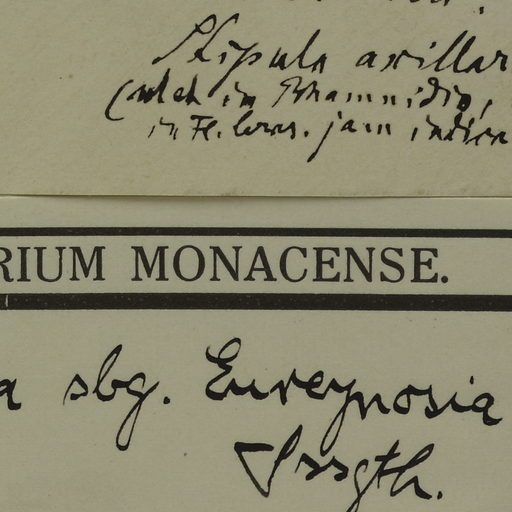 Stipula axillar
in Rhamnidio,
in Fl. bras. jam indica
RIUM MONACENSE.
a sbg. Eureynosia